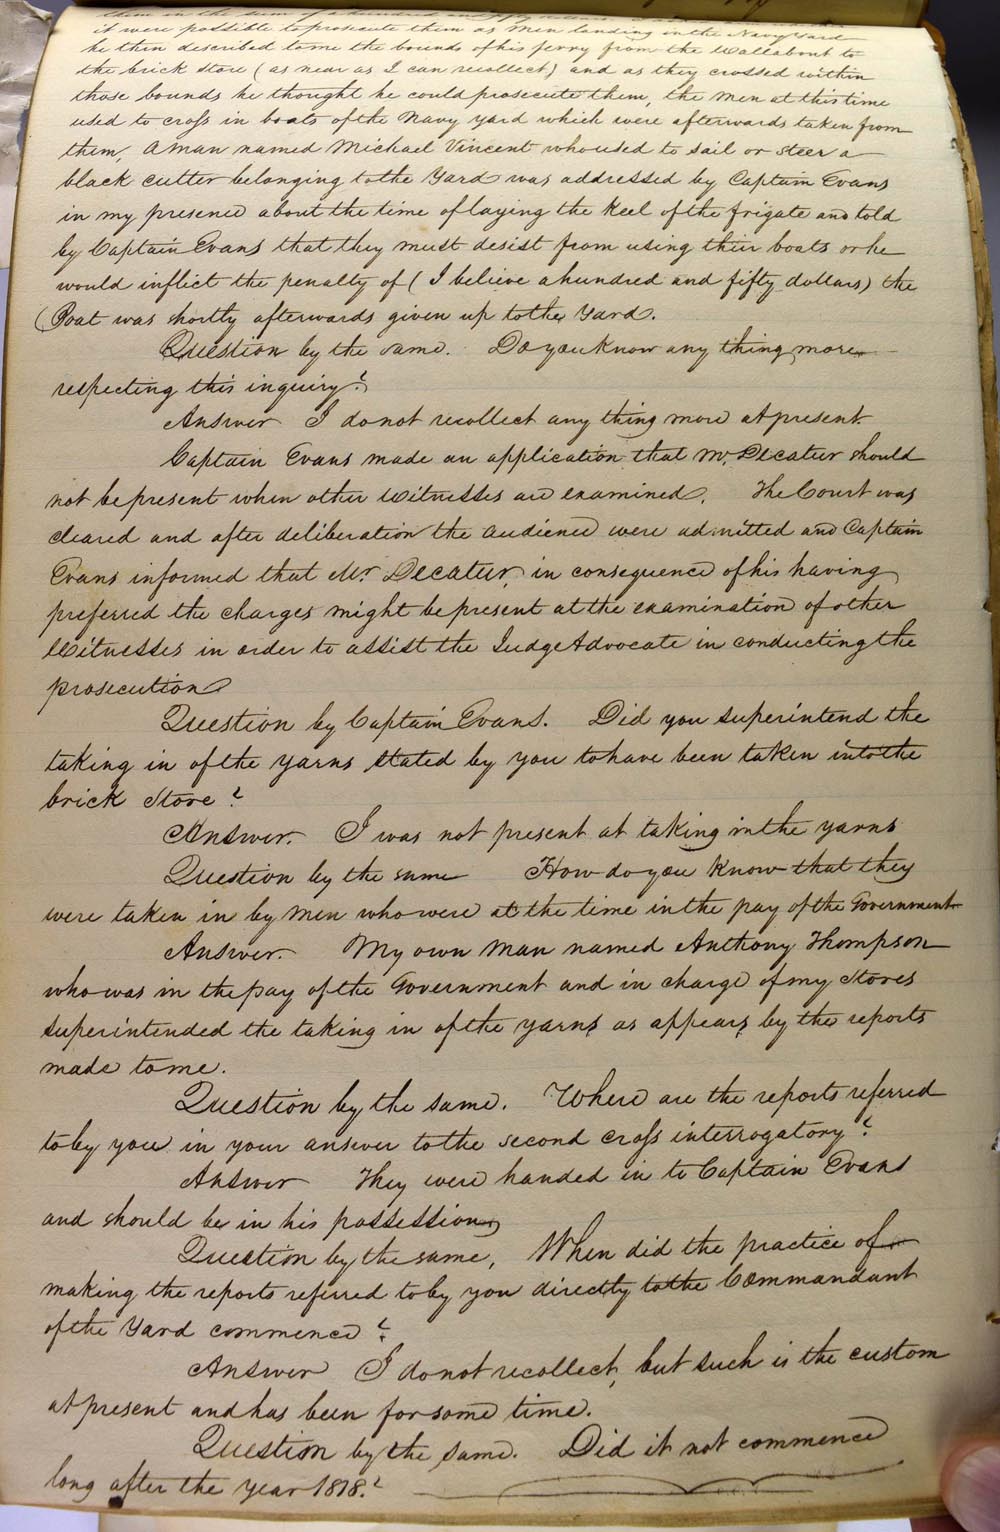 them in the sum of a hundred and fifty
it were possible to prosecute them as Men landing in the Navy Yard
he then described to me the bounds of his ferry from the Wallabout to
the brick Store (as near as I can recollect) and as they crossed within
those bounds he thought he could prosecute them, the Men at this time
used to cross in boats of the Navy Yard which were afterwards taken from
them, A man named Michael Vincent who used to sail or steer a
black cutter belonging to the Yard was addressed by Captain Evans
in my presence about the time of laying the Keel of the frigate and told
by Captain Evans that they must desist from using their boats or he
would inflict the penalty of (I believe a hundred and fifty dollars) the
Boat was shortly afterwards given up to the Yard.
Question by the same. Do you Know any thing more
respecting this inquiry?
Answer I do not recollect any thing more at present.
Captain Evans made an application that Mr. Decatur should
not be present when other Witnesses are examined. The Court was
cleared and after deliberation the audience were admitted and Captain
Evans informed that Mr. Decatur, in consequence of his having
preferred the charges might be present at the examination of other
Witnesses in order to assist the Judge Advocate in conducting the
prosecution
Question by Captain Evans. Did you superintend the
taking in of the yarns stated by you to have been taken into the
brick Store?
Answer. I was not present at taking in the yarns
Question by the same How do you Know that they
were taken in by Men who were at the time in the pay of the Government
Answer. My own man named Anthony Thompson
who was in the pay of the Government and in charge of my Stores
superintended the taking in of the yarns, as appears, by the reports
made to me.
Question by the same. Where are the reports referred
to by you in your answer to the second cross interrogatory?
Answer They were handed in to Captain Evans
and should be in his possession,
Question by the same, When did the practice of
making the reports referred to by you directly to the Commandant
of the Yard commence?
Answer I do not recollect, but such is the custom
at present and has been for some time.
Question by the same. Did it not commence
long after the year 1818?